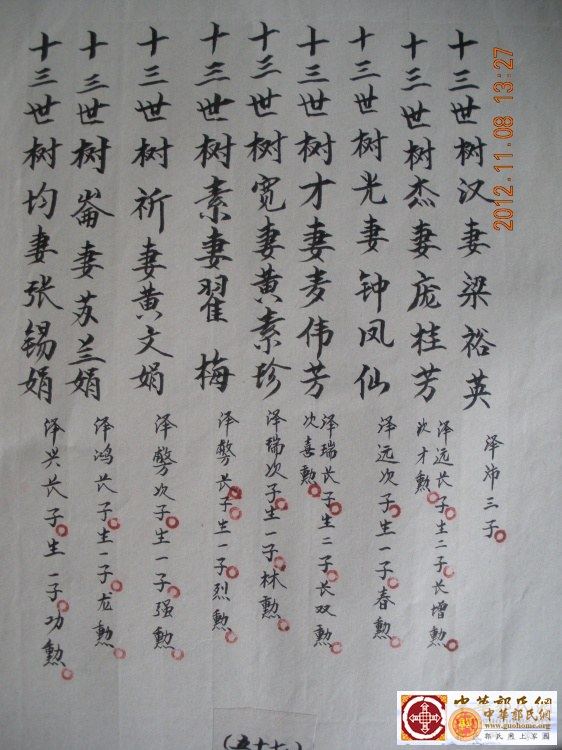 十三世树汉妻梁裕英
泽沛三子
十三世树杰妻庞桂芳
泽远长子生二子长增勲
次才勲
十三世树光妻钟凤仙
泽远次子生一子春勲
十三世树才妻麦伟芳
泽瑞长子生二子长双勲
次喜勲
十三世树宽妻黄素珍
泽瑞次子生一子林勲
十三世树素妻翟梅
泽磐长子生一子烈勲
十三世树祈妻黄文娟
泽磐次子生一子强勲
十三世树崙妻苏兰娟
泽鸿长子生一子龙勲
十三世树均妻张锡娟
泽兴长子生一子功勲
(五十七)
2012.11.08 13:27
中華郭氏網
中華郭氏網
www.chinaguo.org
郭氏網上家園